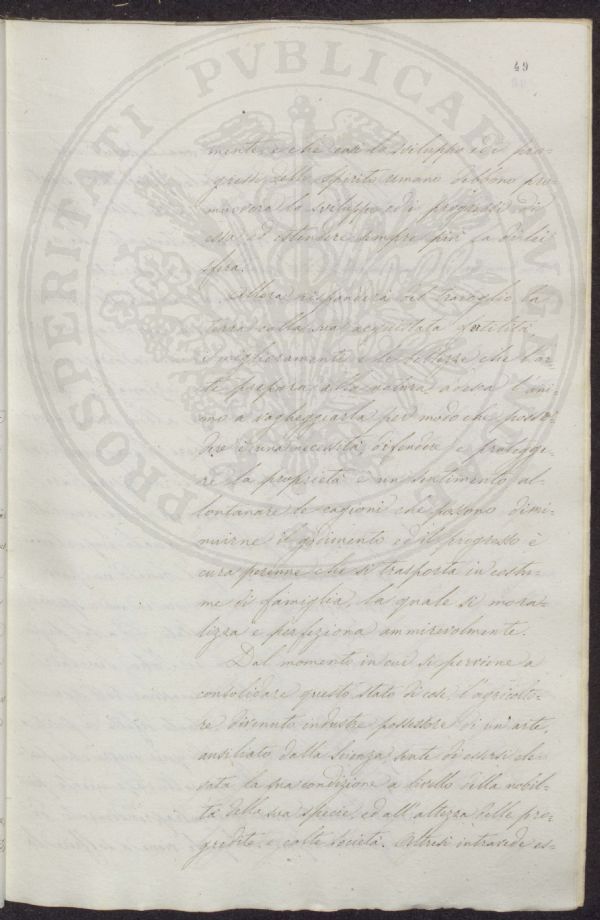 49
PROSPERITATI PVBLICAE AVGENDAE
mente, e che così lo sviluppo ed i pro-
gressi dello spirito umano debbono pro-
muovere lo sviluppo ed i progressi di
essa, ed estendere sempre più la di lei
sfera.
Allora risponderà al travaglio la
terra colla sua acquistata fertilità
i miglioramenti e le bellezze che l'ar-
te prepara alla natura adesca l'ani-
mo a vagheggiarla per modo che posse-
dere è una necessità, difendere e protegge-
re la proprietà è un sentimento al-
lontanare le cagioni che possono dimi-
nuirne il godimento ed il progresso è
cura perenne che si trasporta in costu-
me di famiglia, la quale si mora-
lizza e perfeziona ammirevolmente.
Dal momento in cui si perviene a
consolidare questo stato di cose, l'agricolto-
re, divenuto industre possessore di un'arte,
ausiliato dalla scienza sente di essersi ele-
vata la sua condizione a livello della nobil-
tà della sua specie, ed all'altezza delle pro-
gredite e colte società. Altresì intravede es-